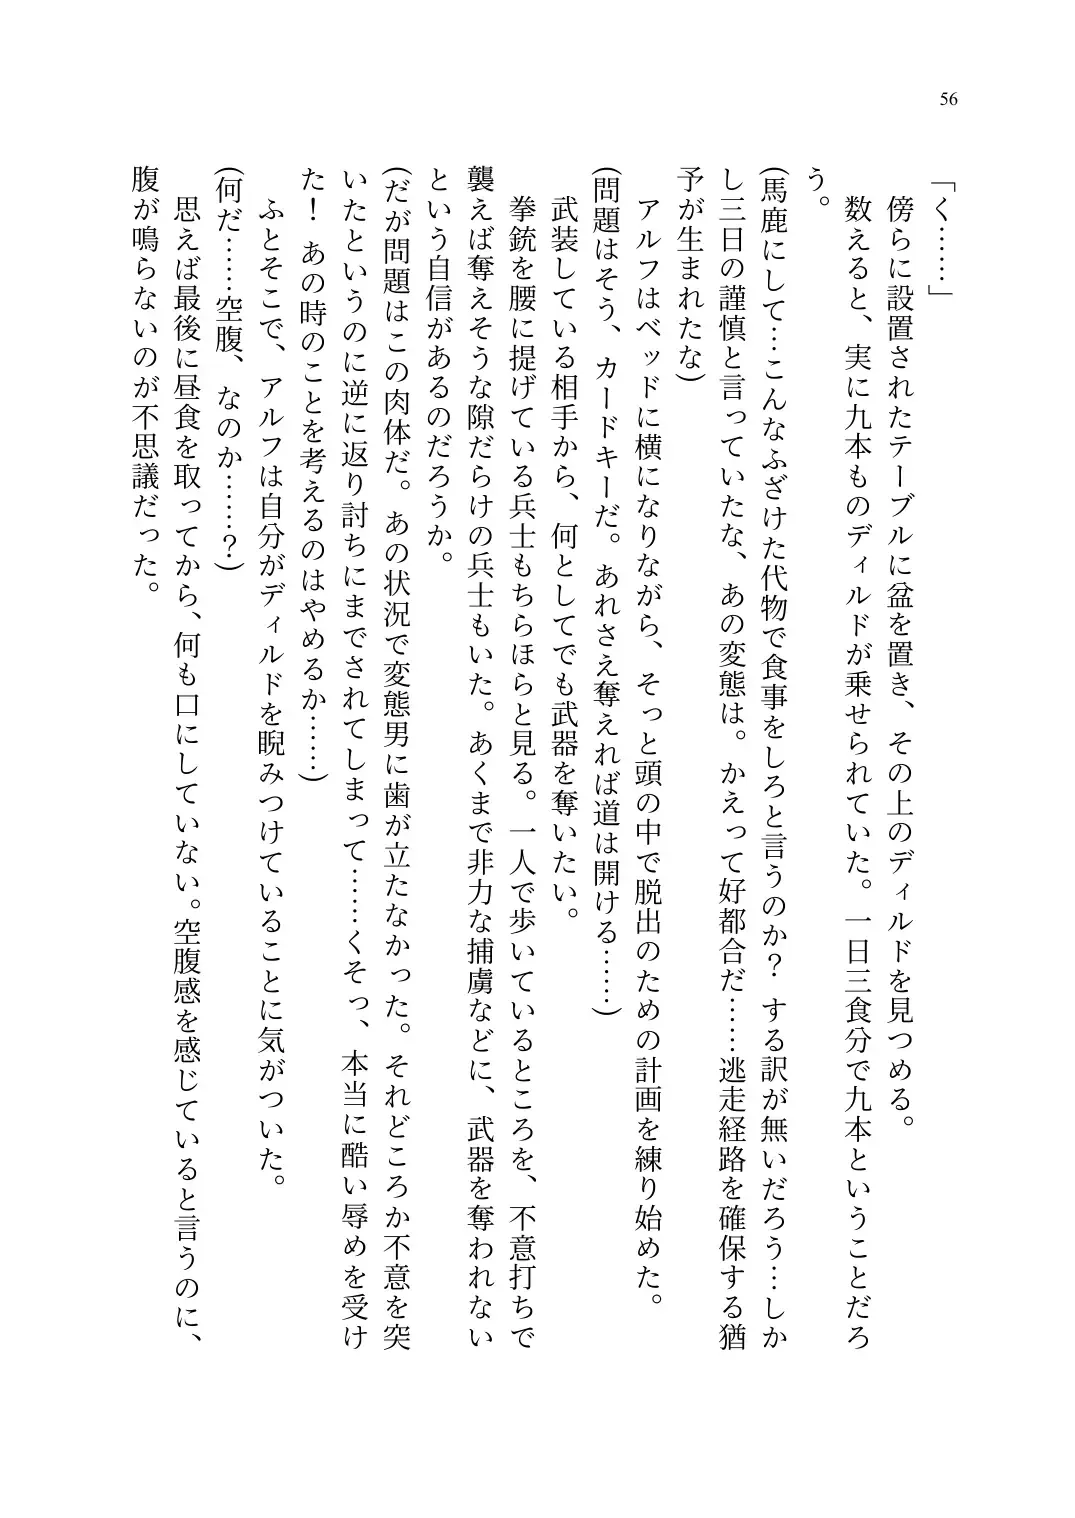 56
「く……」
傍らに設置されたテーブルに盆を置き、その上のディルドを見つめる。
数えると、実に九本ものディルドが乗せられていた。一日三食分で九本ということだろ
う。
(馬鹿にして…こんなふざけた代物で食事をしろと言うのか？ する訳が無いだろう…しか
し三日の謹慎と言っていたな、あの変態は。かえって好都合だ……逃走経路を確保する猶
予が生まれたな)
アルフはベッドに横になりながら、そっと頭の中で脱出のための計画を練り始めた。
(問題はそう、カードキーだ。あれさえ奪えれば道は開ける……)
武装している相手から、何としてでも武器を奪いたい。
拳銃を腰に提げている兵士もちらほらと見る。一人で歩いているところを、不意打ちで
襲えば奪えそうな隙だらけの兵士もいた。あくまで非力な捕虜などに、武器を奪われない
という自信があるのだろうか。
(だが問題はこの肉体だ。あの状況で変態男に歯が立たなかった。それどころか不意を突
いたというのに逆に返り討ちにまでされてしまって……くそっ、本当に酷い辱めを受け
た！ あの時のことを考えるのはやめるか……)
ふとそこで、アルフは自分がディルドを睨みつけていることに気がついた。
(何だ……空腹、なのか……？)
思えば最後に昼食を取ってから、何も口にしていない。空腹感を感じていると言うのに、
腹が鳴らないのが不思議だった。